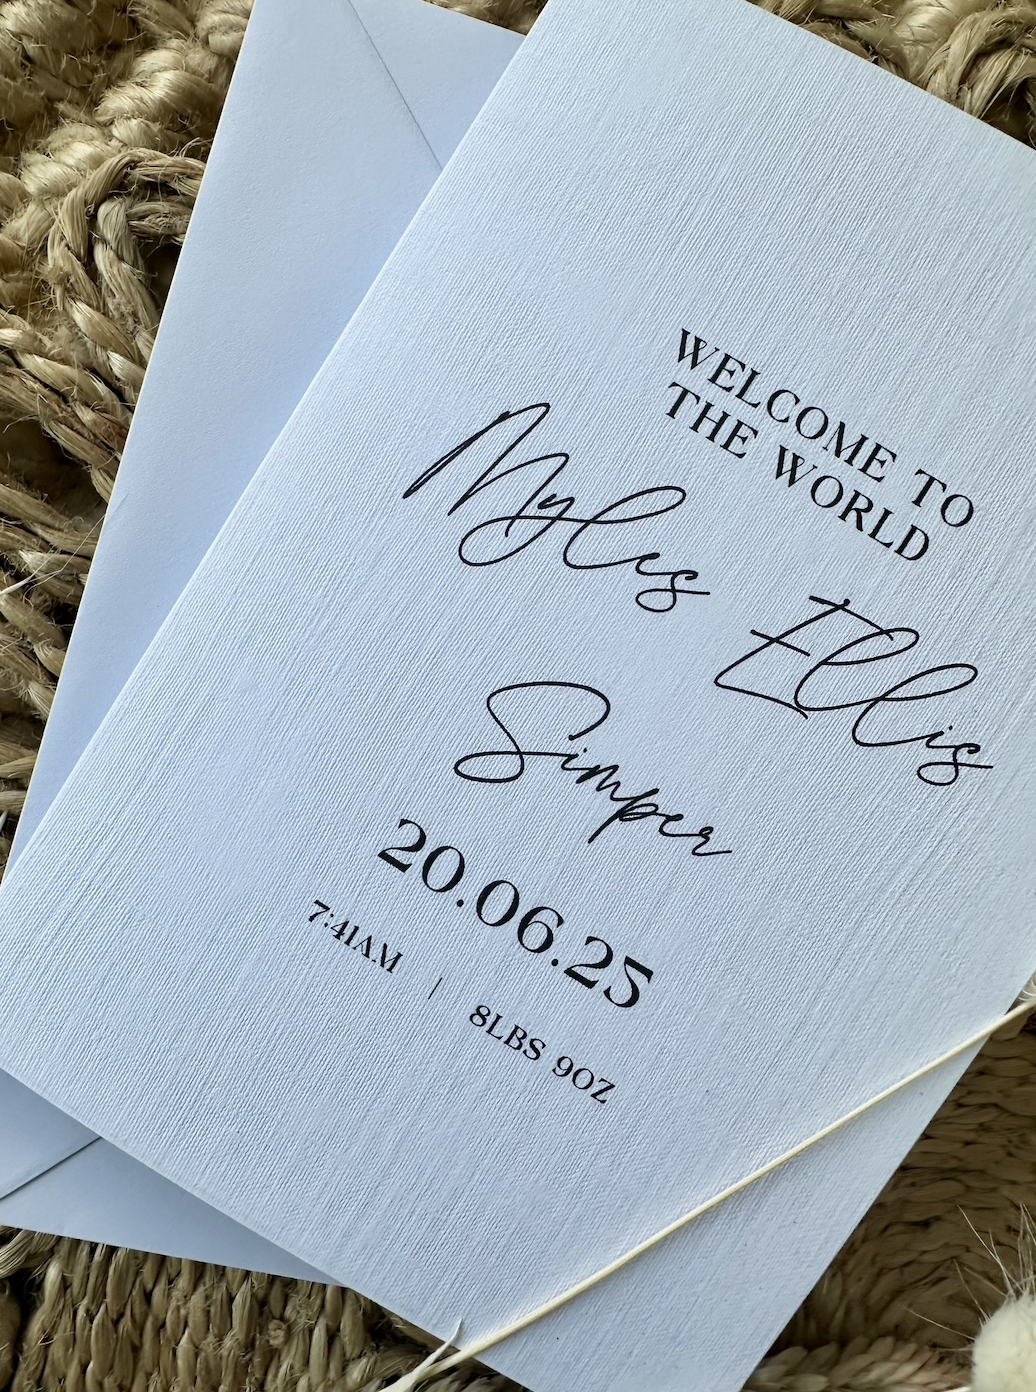 WELCOME TO
THE WORLD
Myles Ellis
Simper
20.06.25
7:41AM | 8LBS 9OZ